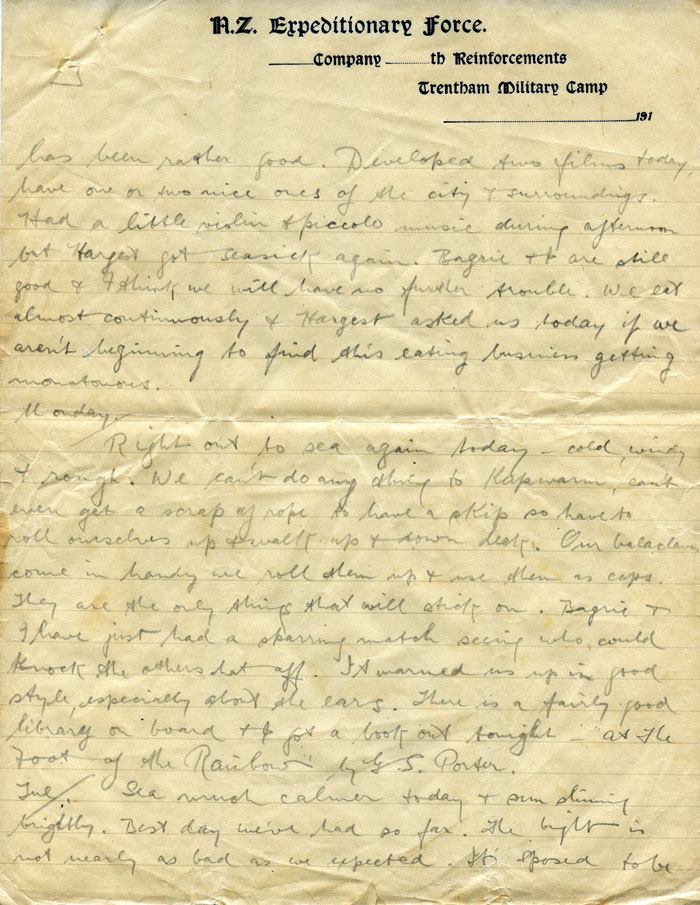 N.Z. Expeditionary Force.
Company th Reinforcements
Trentham Military Camp
191
has been rather good. Developed two films today,
have one or two nice ones of the city & surroundings.
Had a little violin & piccolo music during afternoon
but Hargest got seasick again. Bagrie & I are still
good & I think we will have no further trouble. We eat
almost continuously & Hargest asked us today if we
aren't beginning to find this eating business getting
monotonous.
Monday
Right out to sea again today – cold, windy
& rough. We can't do any thing to keep warm, can't
even get a scrap of rope to have a skip so have to
roll ourselves up & walk up & down deck. Our balaclavas
come in handy we roll them up & use them as caps.
They are the only things that will stick on. Bagrie &
I have just had a sparring match seeing who could
knock the others hat off. It warmed us up in good
style, especially about the ears. There is a fairly good
library on board & I got a book out tonight – at the
Foot of the Rainbow by G. S. Porter.
Tue. Sea much calmer today & sun shining
brightly. Best day we've had so far. The bight is
not nearly as bad as we expected. It's sposed to be